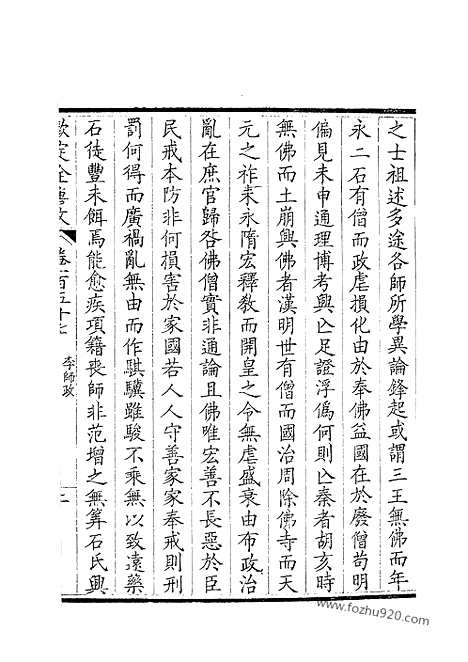 之士祖述多途各師所學異論鋒起或謂三王無佛而年
永二石有僧而政虐損化由於奉佛益國在於廢僧苟明
偏見未申通理博考興亾足證浮僞何則亾秦者胡亥時
無佛而土崩興佛者漢明世有僧而國治周除佛寺而天
元之祚未永隋宏釋敎而開皇之令無虐盛衰由布政治
亂在庶官歸咎佛僧實非通論且佛唯宏善不長惡於臣
民戒本防非何損害於家國若人人守善家家奉戒則刑
罰何得而廣禍亂無由而作騏驥雖駿不乘無以致遠藥
石徒豐未餌焉能愈疾項籍喪師非范增之無筭石氏興
欽定全唐文 卷一百五十七 李師政 二
www.fozhu920.com